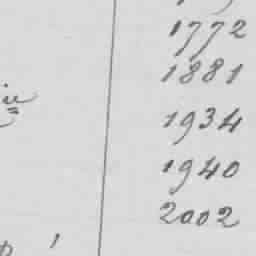 1772
1881
1934
1940
2002